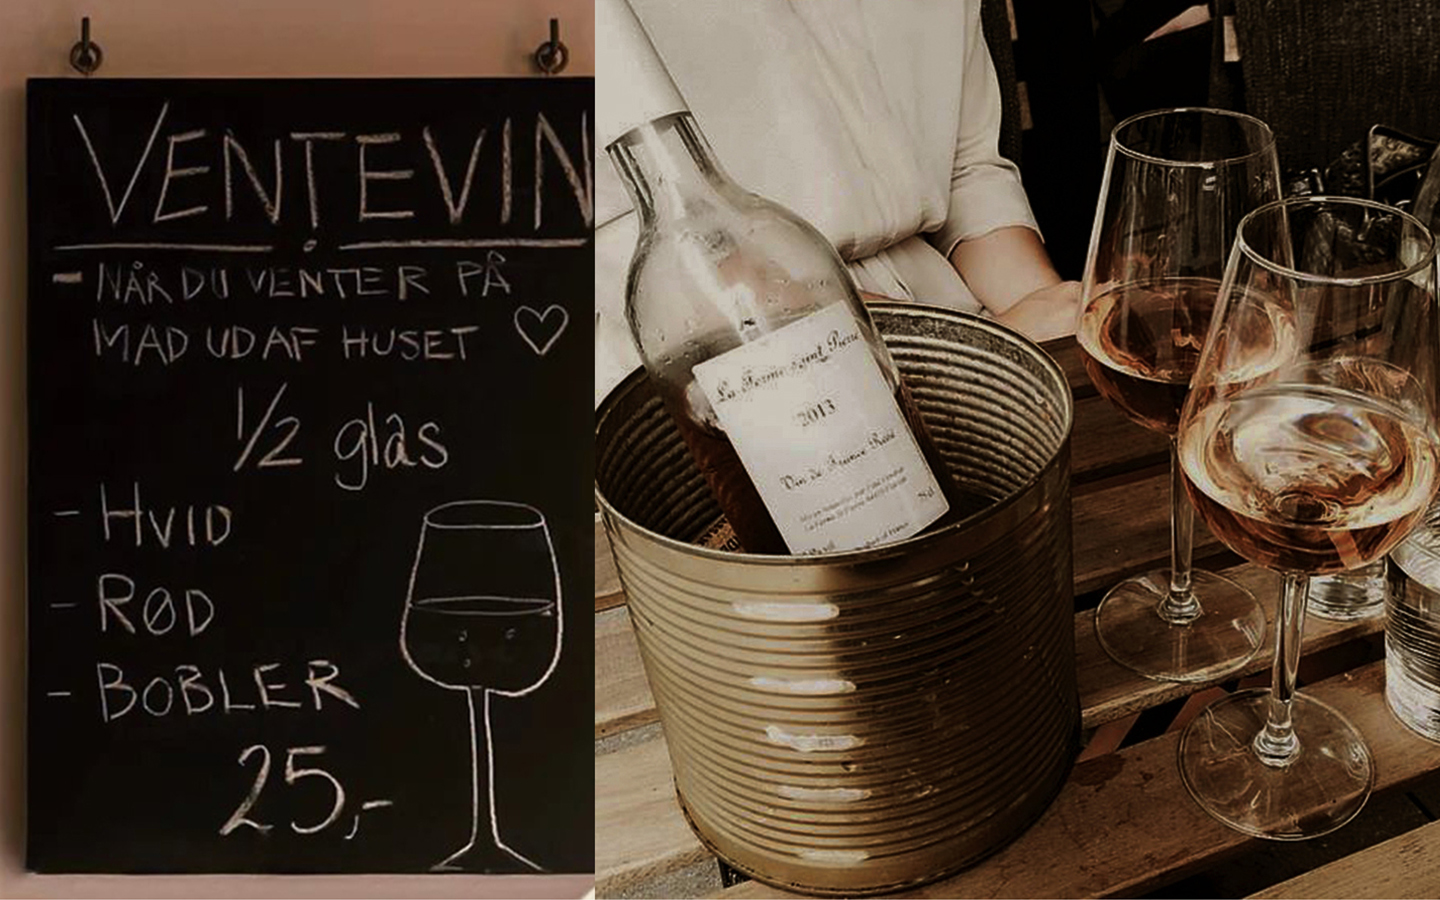 VENTEVIN
- NÅR DU VENTER PÅ
MAD UD AF HUSET ♡
1/2 glas
- HVID
- RØD
- BOBLER
25,-
La Ferme Saint Pierre
2013
Vin de France Rosé
75cl